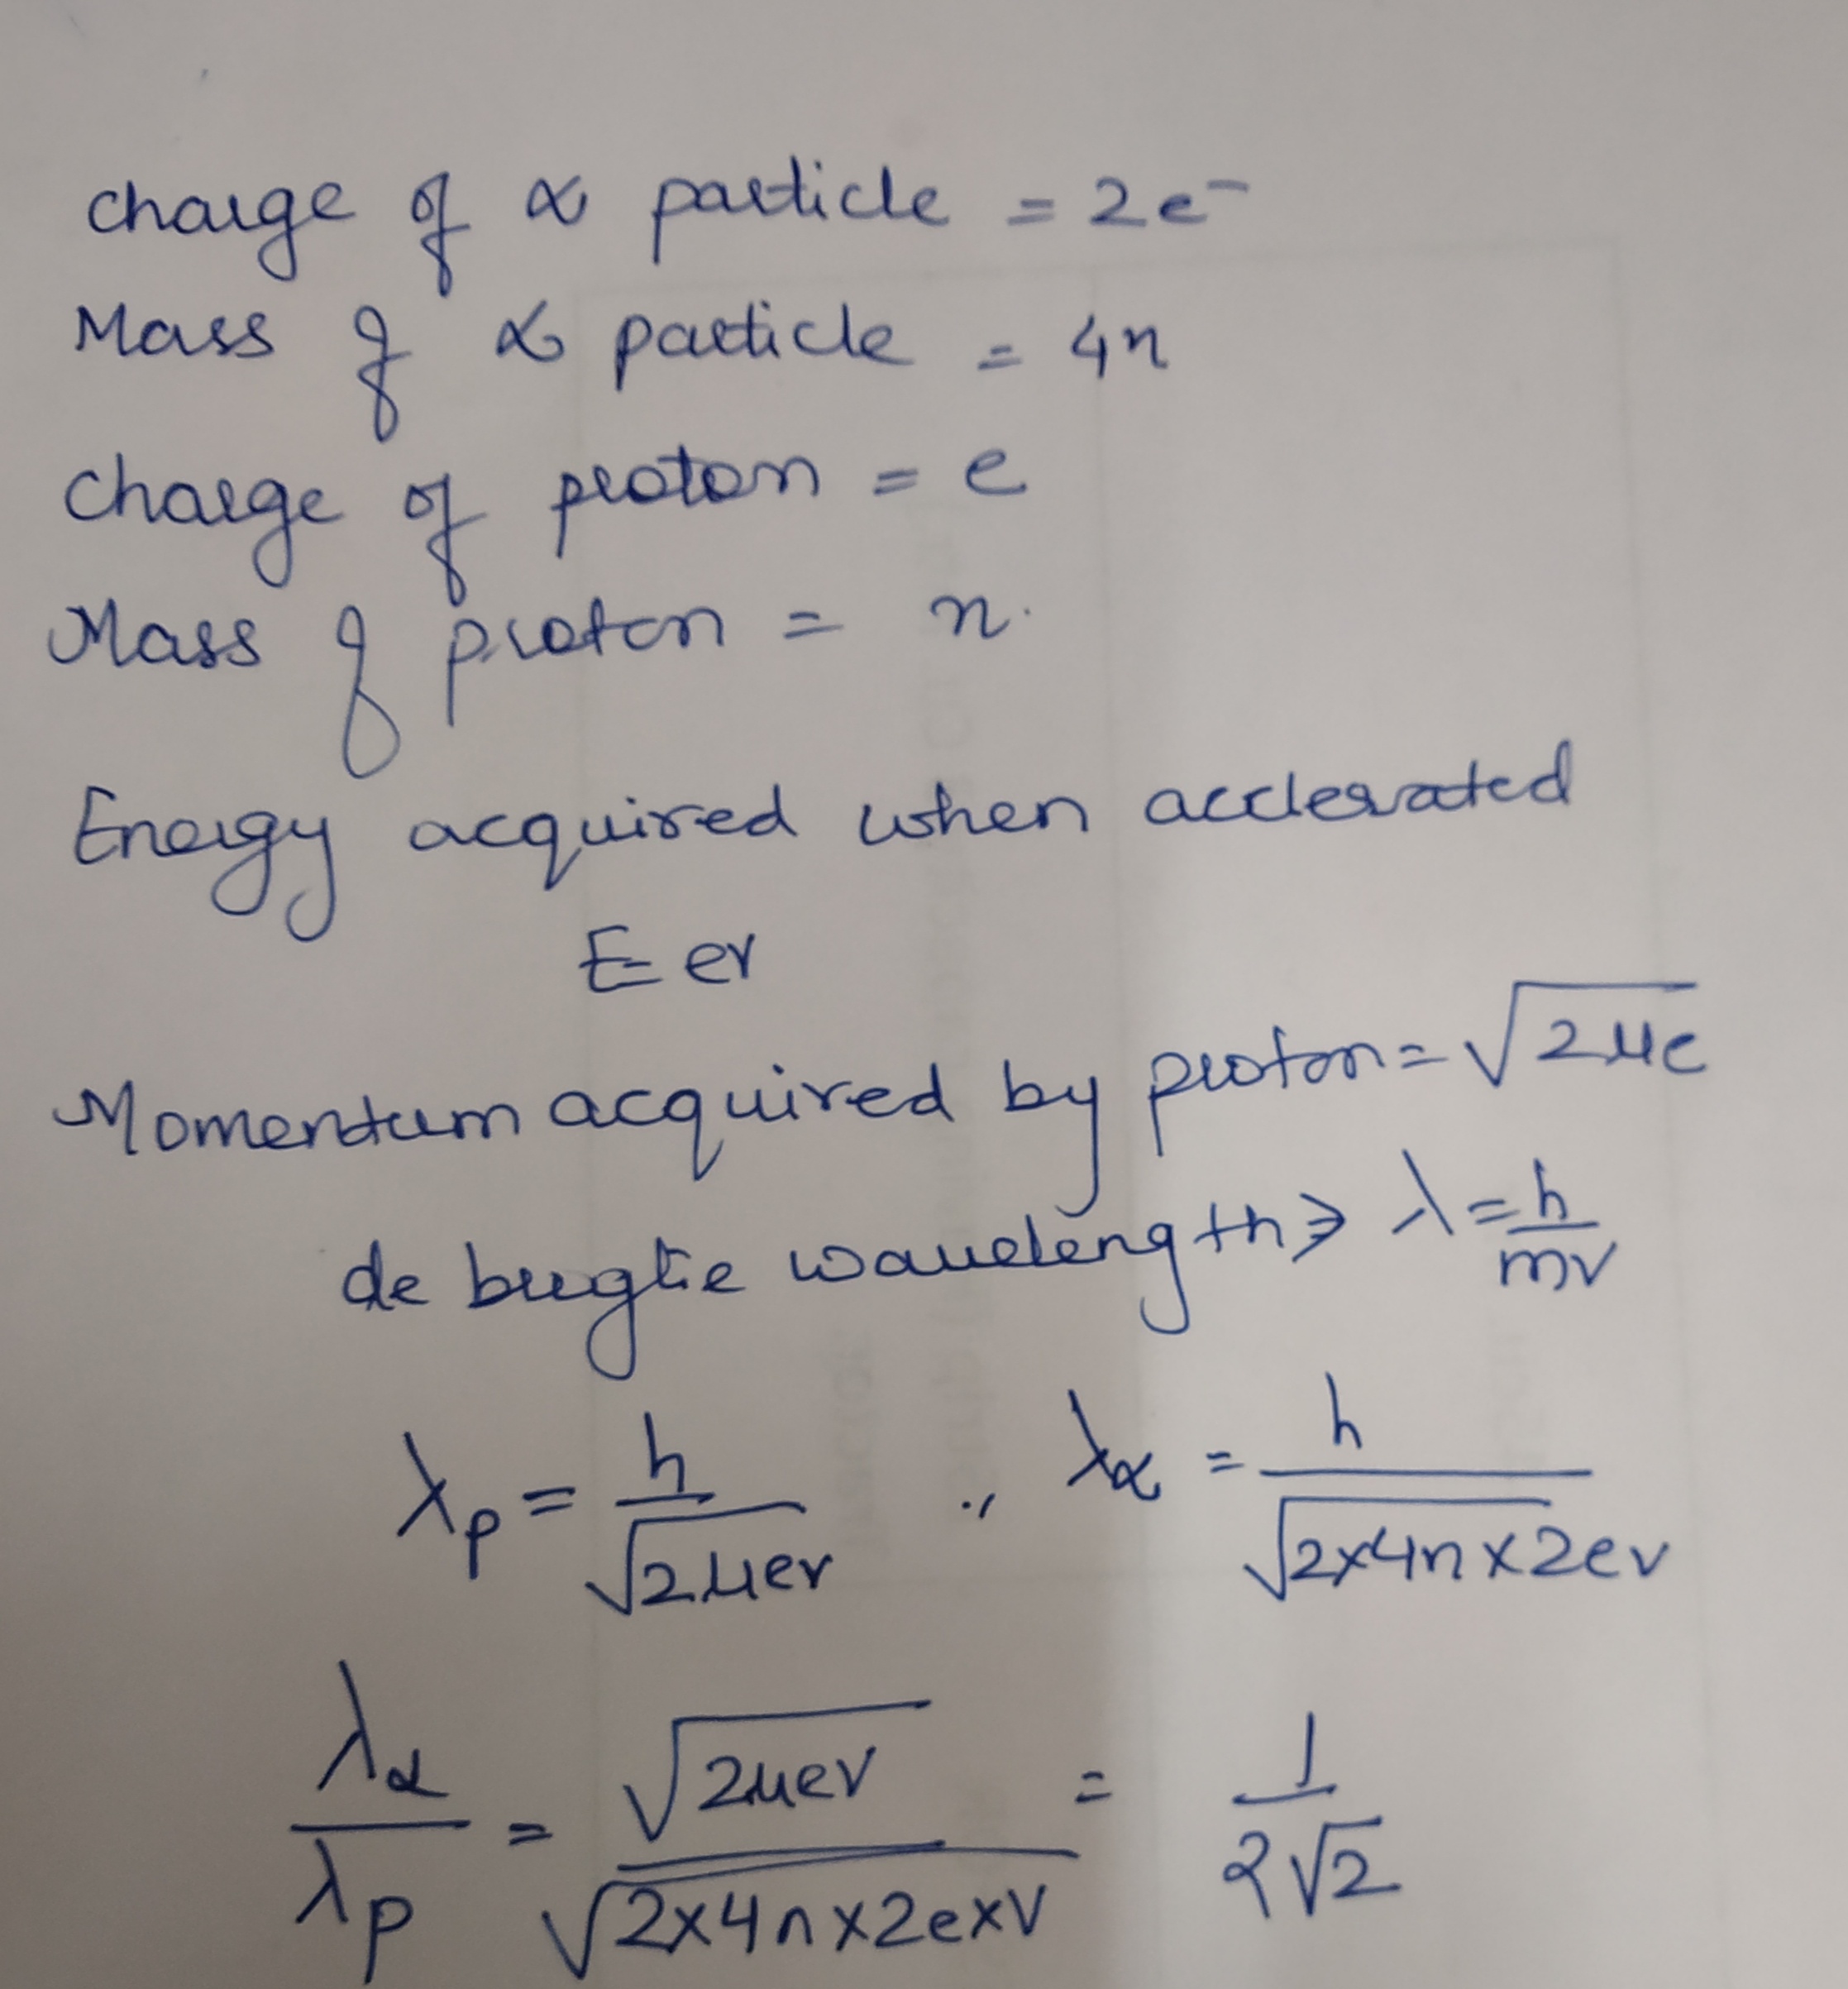 charge of α particle = 2e⁻
Mass of α particle = 4n
charge of proton = e
Mass of proton = n.
Energy acquired when acclerated
E= ev
Momentum acquired by proton = √2μe
de broglie wavelength → λ = h/mv
λp = h/√2μev , λα = h/√2×4n×2ev
λα/λp = √2μev/√2×4n×2e×V = 1/2√2